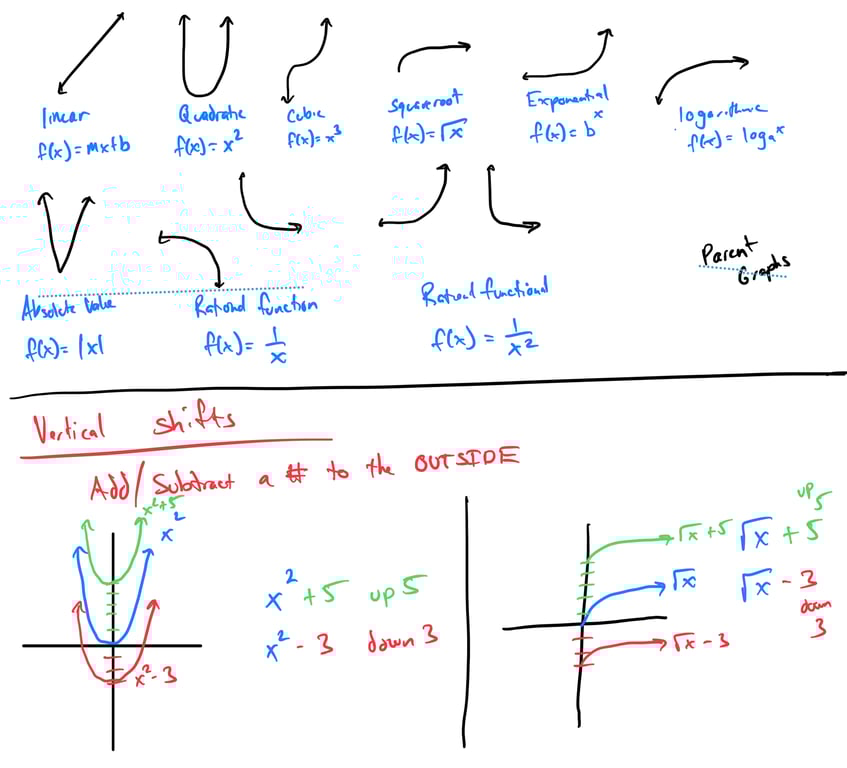 linear
f(x) = mx+b
Quadratic
f(x) = x²
Cubic
f(x) = x³
Squareroot
f(x) = √x
Exponential
f(x) = bˣ
logarithmic
f(x) = logₐx
Absolute Value
f(x) = |x|
Rational function
f(x) = 1/x
Rational functional
f(x) = 1/x²
Parent
Graphs
Vertical shifts
Add/Subtract a # to the OUTSIDE
x²+5
x²
x²-3
x² +5 up 5
x² - 3 down 3
√x +5
√x
√x - 3
up
5
√x + 5
√x - 3
down
3